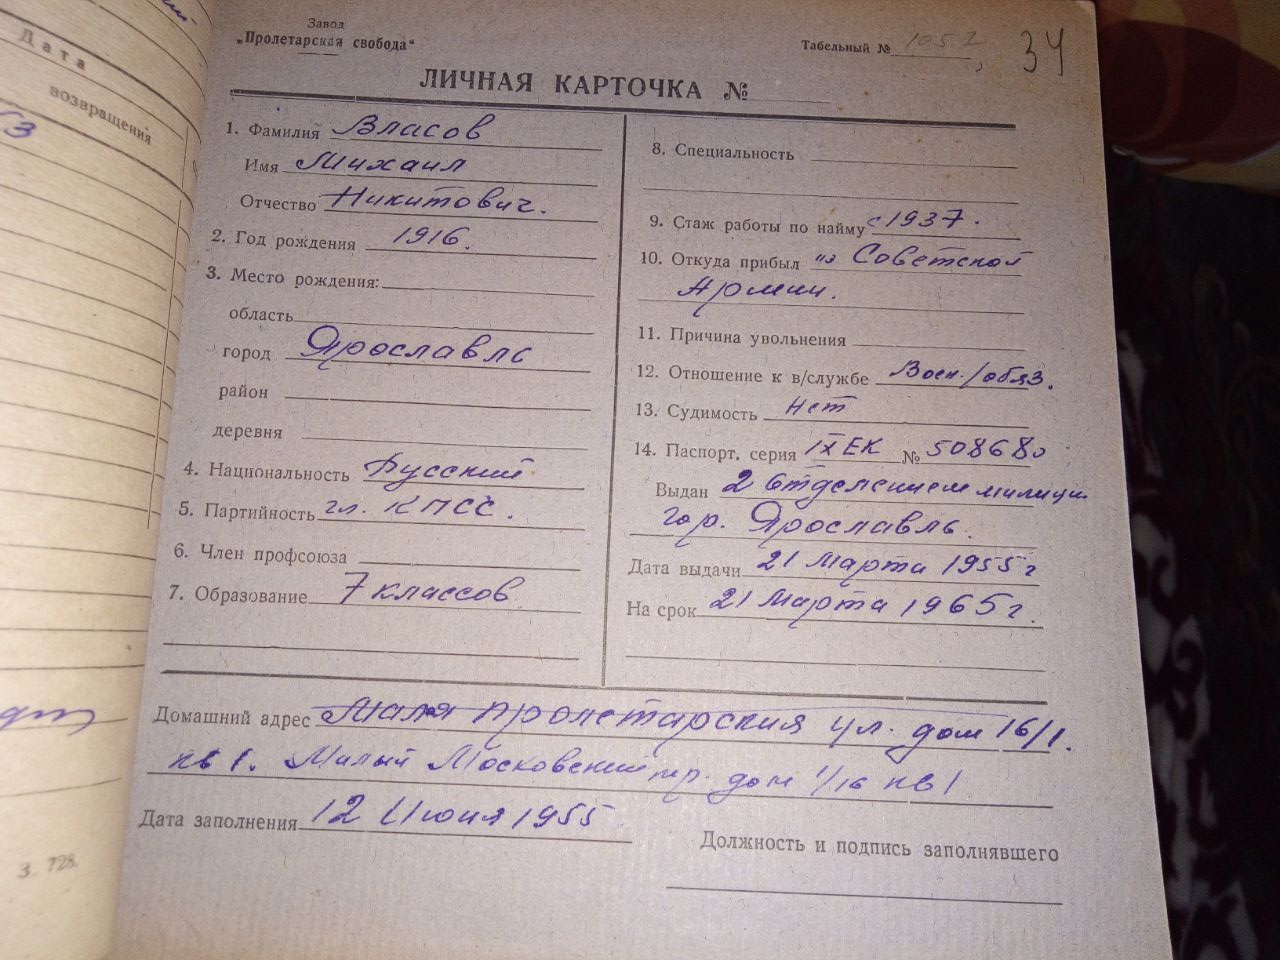 Дата
возвращения
З. 728.
Завод
„Пролетарская свобода“
Табельный № 1052
34
ЛИЧНАЯ КАРТОЧКА №
1. Фамилия Власов
Имя Михаил
Отчество Никитович.
2. Год рождения 1916.
3. Место рождения:
область
город Ярославль
район
деревня
4. Национальность Русский
5. Партийность чл. КПСС.
6. Член профсоюза
7. Образование 7 классов
8. Специальность
9. Стаж работы по найму с 1937.
10. Откуда прибыл из Советской
Армии.
11. Причина увольнения
12. Отношение к в/службе Воен./обяз.
13. Судимость нет
14. Паспорт, серия IX ЕК № 508680
Выдан 2 Отделением милиции
гор. Ярославль.
Дата выдачи 21 Марта 1955 г
На срок 21 Марта 1965 г.
Домашний адрес Малая пролетарская ул. дом 16/1.
кв 1. Малый Московский пр. дом 1/16 кв 1
Дата заполнения 12 Июня 1955
Должность и подпись заполнявшего